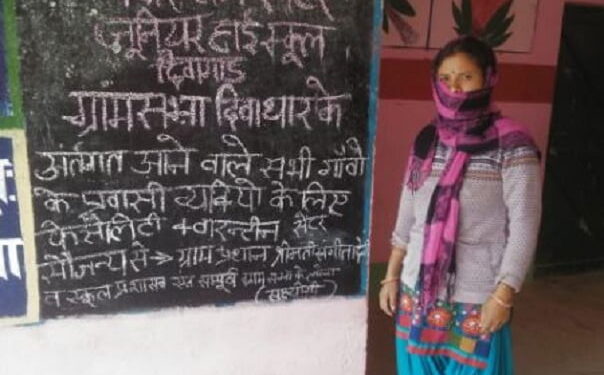 जूनियर हाईस्कूल
दिवागाड
ग्रामसभा दिवाधार के
अंतगत आने वाले सभी गाँवो
के प्रवासी व्यक्तियो के लिए
फेसेलिटी क्वारन्टीन सेंटर
सौजन्य से → ग्राम प्रधान श्रीमती संगीता देवी
व स्कूल प्रशासन एवं सम्पूर्ण ग्राम सभा के